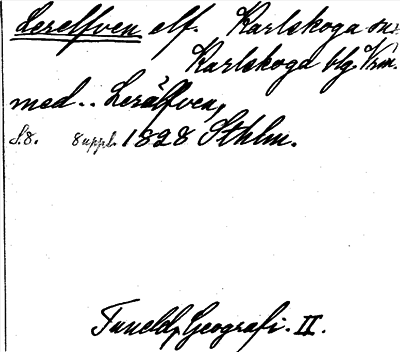 Lerelfven elf. Karlskoga sn.
Karlskoga blg. Vrm.
med.. Lerälfven,
S.8. 8 uppl. 1828 Sthlm.
Tuneld, Geografi. II.